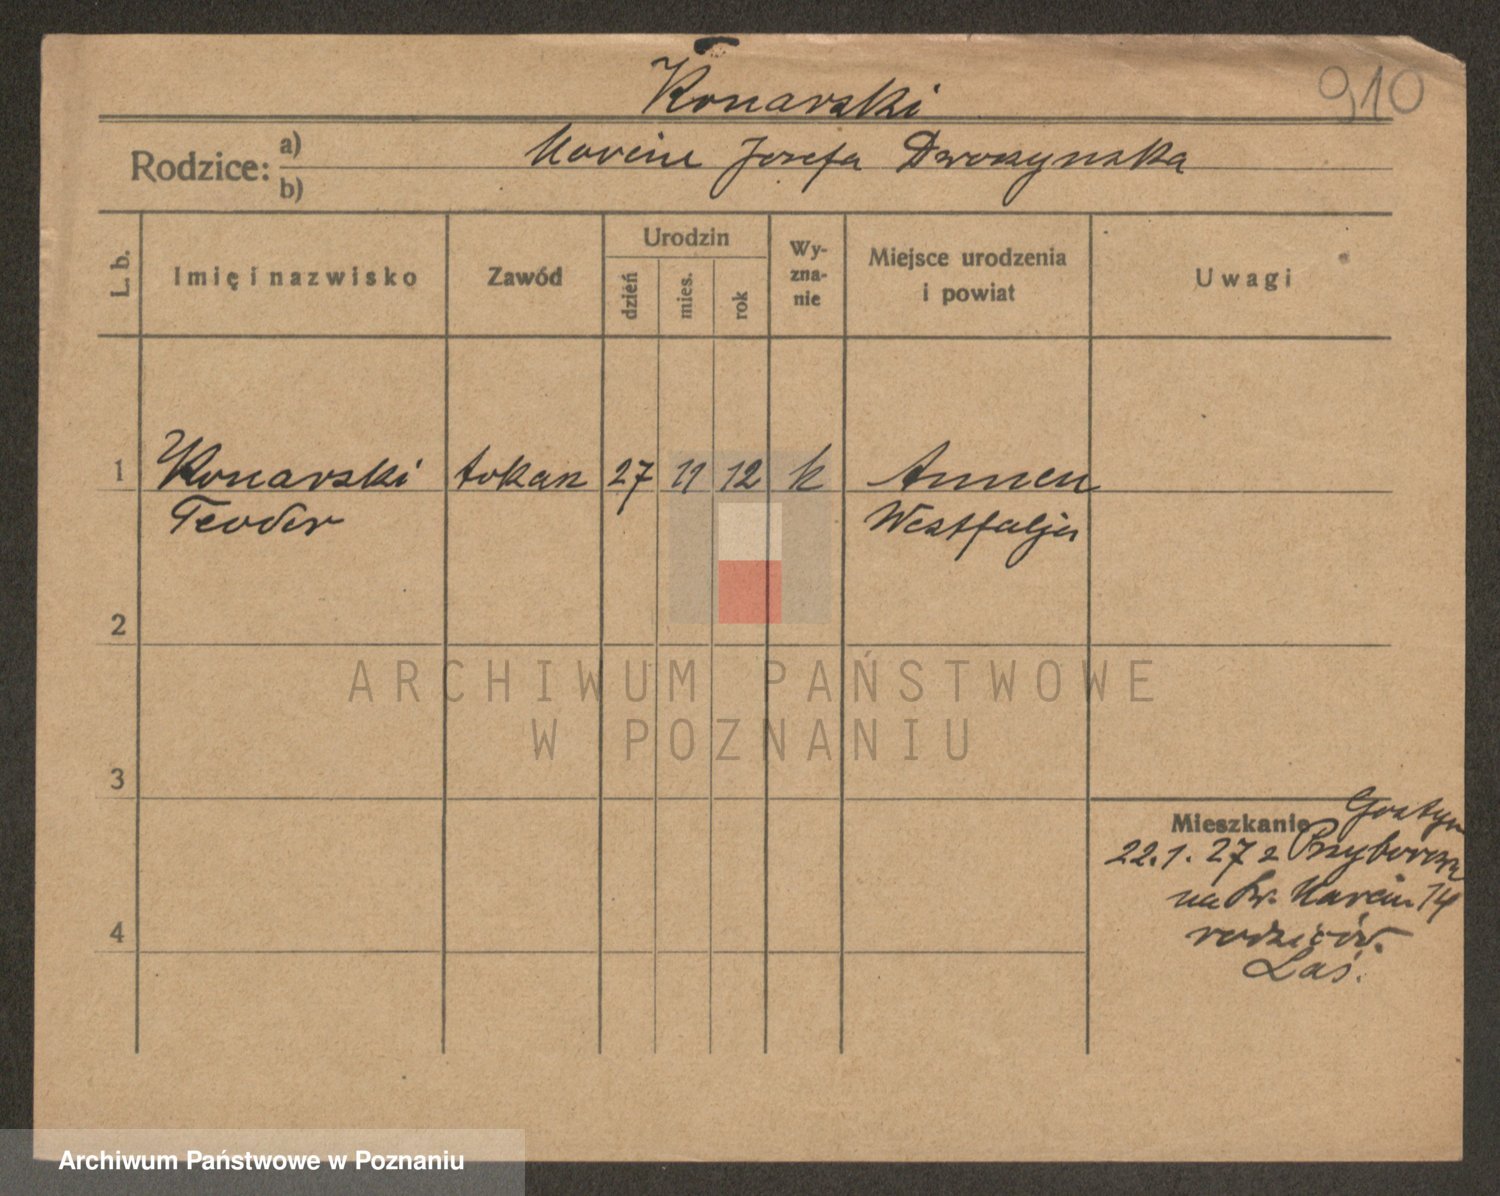 Konarski
910
Rodzice: a) Marcin Józefa Dworzynska
b)
L. b.
Imię i nazwisko
Zawód
Urodzin
dzień
mies.
rok
Wy-
zna-
nie
Miejsce urodzenia
i powiat
Uwagi
1 Konarski tokarz 27 11 12 k Annen
Teodor Westfalja
2
3
4
Mieszkanie Gostyn
22.1.27 z
na Św. Marcin 14
rodziców.
Laś.
ARCHIWUM PAŃSTWOWE
W POZNANIU
Archiwum Państwowe w Poznaniu